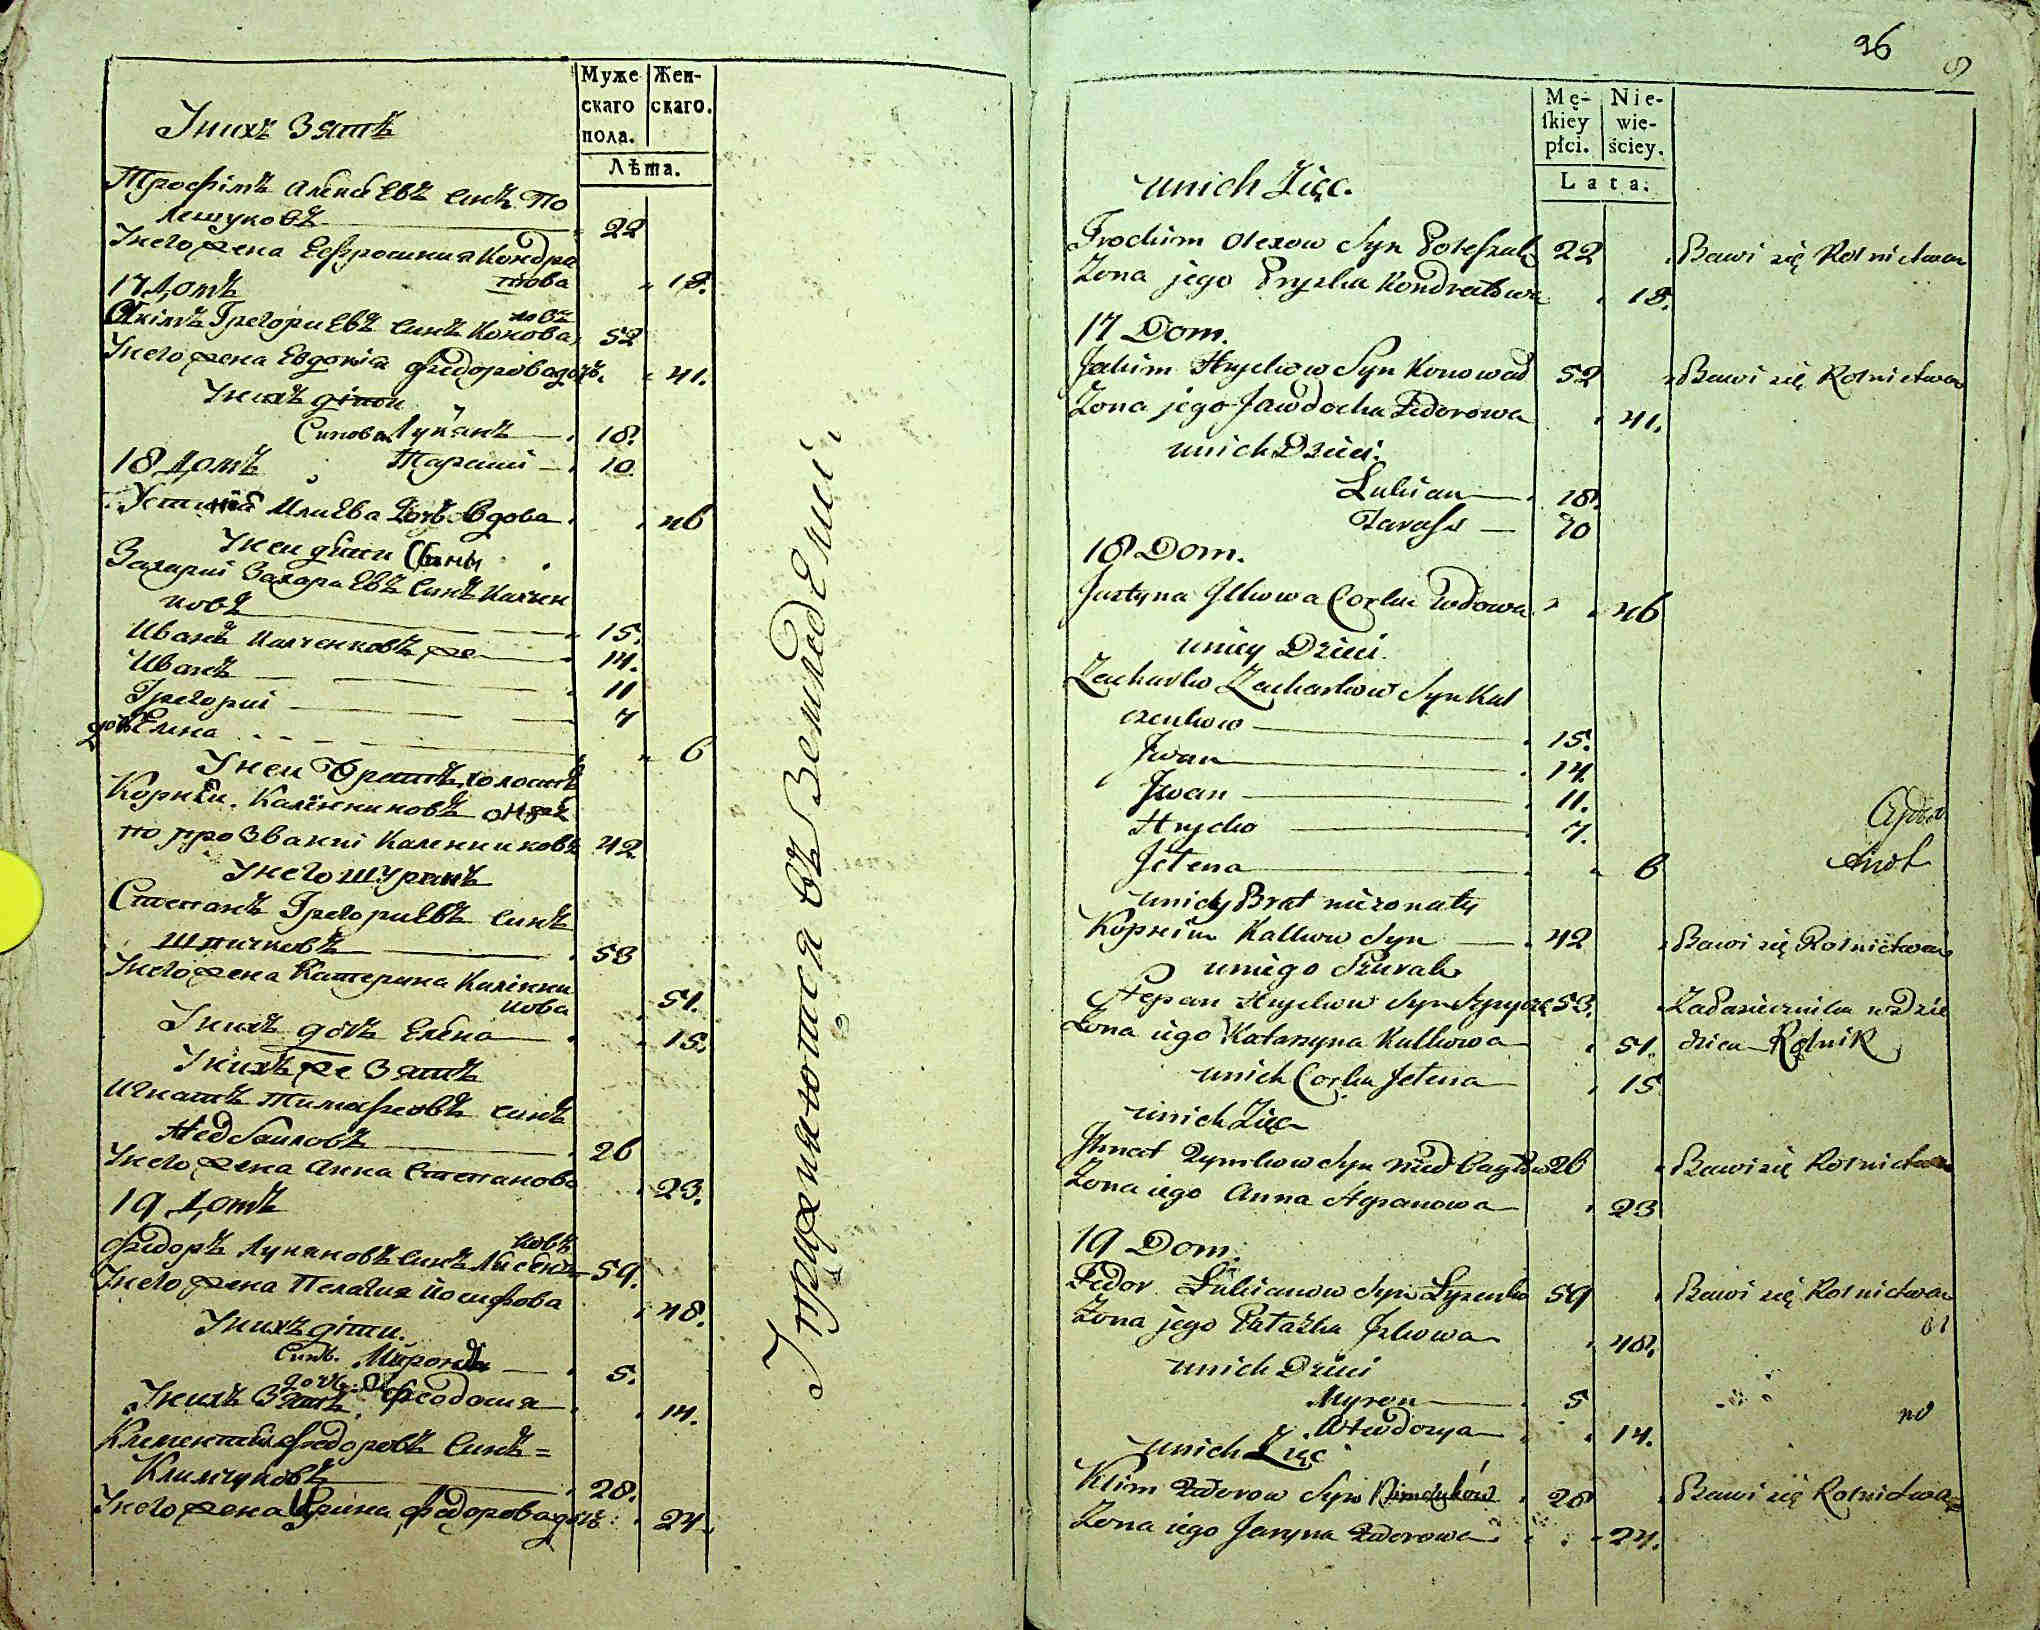 Муже
скаго
пола.
Жен-
скаго.
Лѣта.
Унихъ Зять
Трофімъ Алексѣевъ синъ По
лешуковъ 22
Унего жена Еефросиния Кондра
това 18.
17 Домъ
Якімъ Грегориевъ синъ Конова
ловъ 52
Унего жена Евдокіа Федорова дочь. 41.
Унихъ діти
Синове Лукянъ 18.
Тарасий 10
18 Домъ
Устинія Илиева дочь Вдова 46
Унеи діти Сыны
Захарий Захариевъ синъ Калчен
ковъ 15.
Иванъ Калченковъ же 14.
Иванъ 11
Грегорий 7
дочь Елена 6
Унеи Братъ холостъ
Корнѣи Калѣнниковъ онъ же
по прозванні Каленниковъ 42
Унего шуринъ
Степанъ Грегориевъ синъ
Шпичковъ 53
Унего жена Катерина Калінни
кова 51.
Унихъ дочь Елена 15.
Унихъ же Зять
Игнатъ Тимофеовъ синъ
Недбайловъ 26
Унего жена Анна Степанова 23.
19 Домъ
Федоръ Лукяновъ синъ Лисен
ковъ 59.
Унего жена Пелагия Иосифова 48.
Унихъ діти.
Синъ. Миронъ 5.
дочь Феодосия 14.
Унихъ Зять.
Климентий Федоровъ Синъ =
Климчуковъ 28.
Унего жена Ирина Федорова дочь 24.
Упражняются въ Земледелии
96
9
Mę-
skiey
płci.
Nie-
wie-
ściey.
Lata.
unich Zięc.
Trochim Olexow Syn Poleszuk 22 Bawi się Rolnictwem
Zona jego Pryska Kondratowa 18.
17 Dom.
Jakim Hryckow Syn Konował 52 Bawi się Rolnictwem
Zona jego Jawdocha Fedorowa 41.
unich Dzieci.
Łukian 18.
Tarass 10
18 Dom.
Justyna Jlkowa Corka Wdowa 46
uniey Dzieci
Zacharko Zacharkow Syn Kal
czenkow 15.
Jwan 14.
Jwan 11.
Hrycko 7.
Jelena 6
uniey Brat nieżonaty
Корнѣи Kallkow Syn 42 Bawi się Rolnictwem
uniego Szurak
Stepan Hryckow Syn Szpycz 53.
Zona iego Katarzyna Kulkowa 51. Rolnik
unich Corka Jelena 15
unich Zięc
Jhnat Tymkow Syn Niedbayłow 26 Bawi się Rolnictwem
Zona iego Anna Stepanowa 23
19 Dom.
Fedor Łukianow Syn Łysenko 59 Bawi się Rolnictwem
Zona jego Pałażka Jskowa 48.
unich Dzieci
Myron 5
Wtwdozya 14.
unich Zięć
Klim Fedorow Syn Klimczuków 28 Bawi się Rolnictwem
Zona iego Jaryna Fedorowa 24.